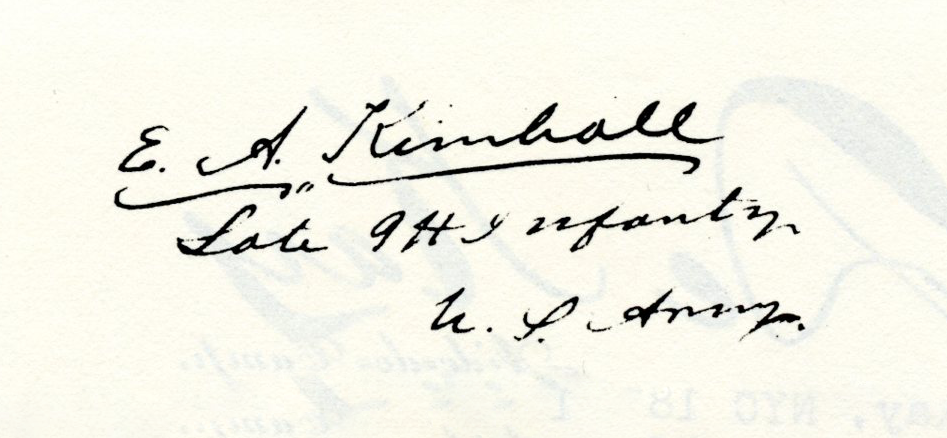 E. A. Kimball
Late 9th Infantry
U. S. Army.